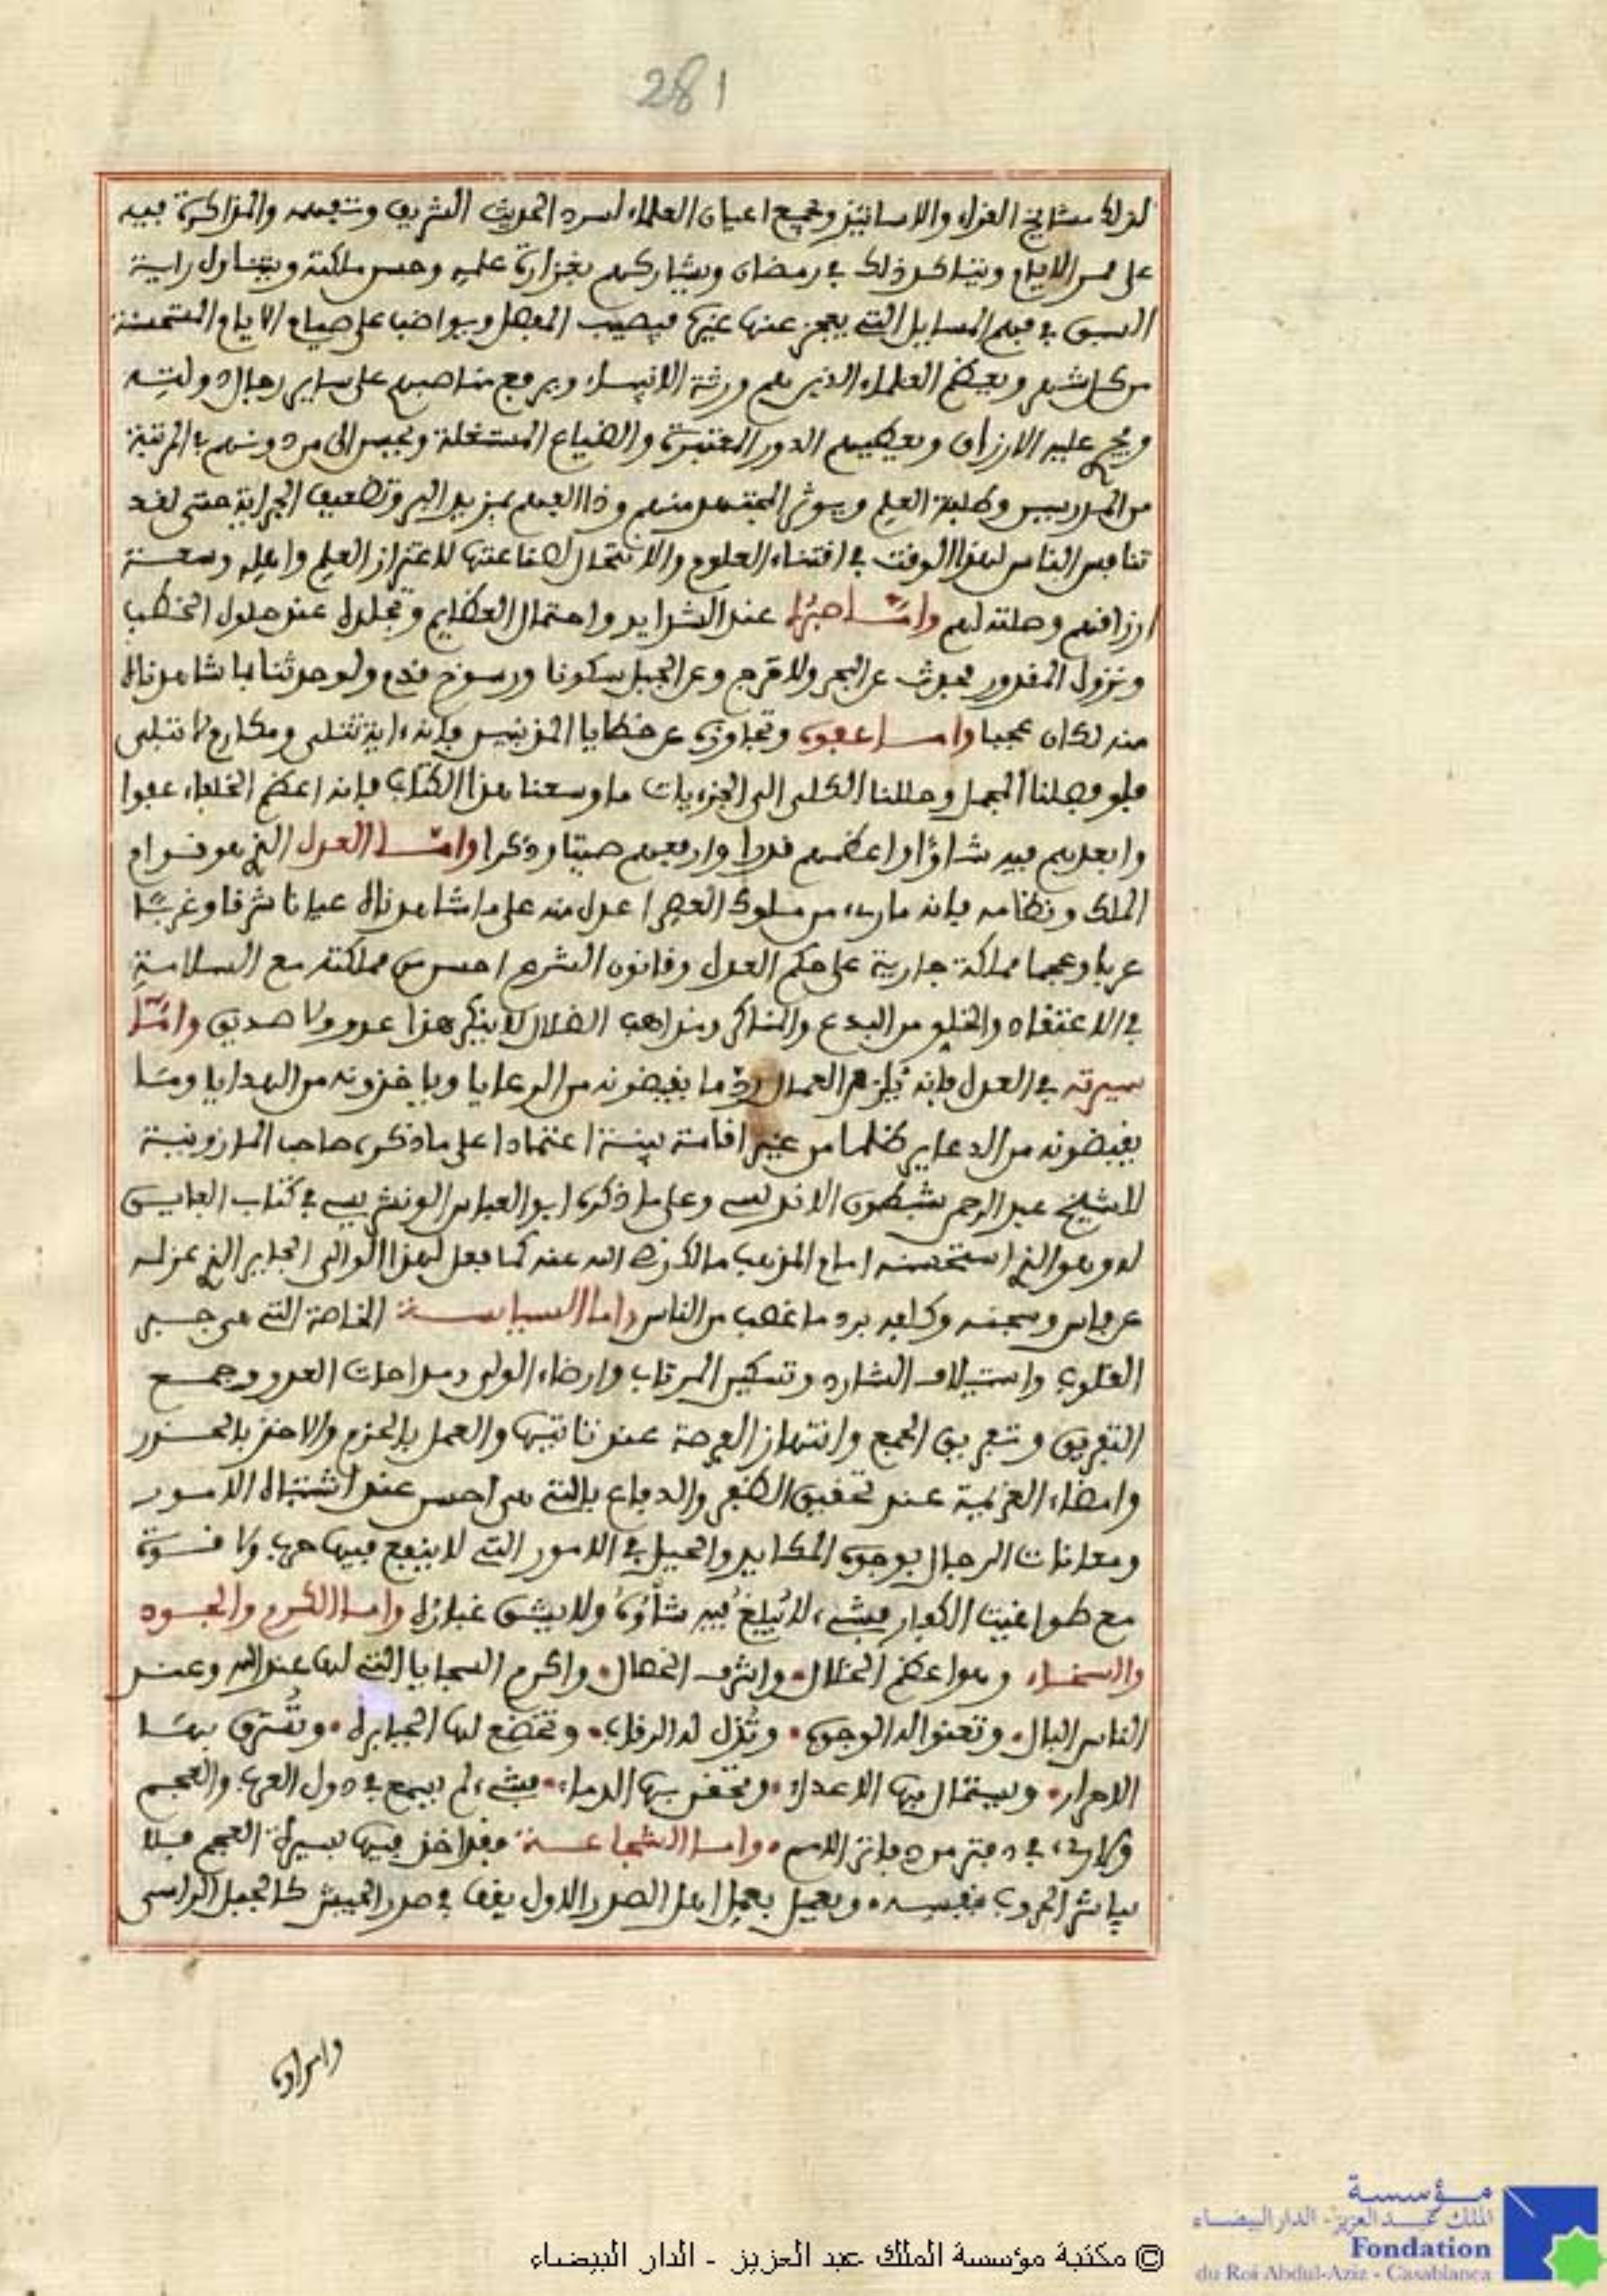 281
لذلك مشايخ القراء والاساتيذ وجميع اعيان العلماء لسرد الحديث الشريف وتفهمه والمذاكرة فيه
على مر الايام ويتاكد ذلك في رمضان ويشاركهم بغزارة علمه وحسن ملكته ويتناول راية
السبق في فهم المسايل التي يعجز عنها غيره فيصيب المفصل ويواضب على صيام الايام المستحسنة
من كل شهر ويعظم العلماء الذين هم ورثة الانبياء ويرفع مناصبهم على ساير رجال دولته
ويجري عليهم الارزاق ويعطيهم الدور المعتبرة والضياع المستغلة ويحسن الى من دونهم في المرتبة
من المدرسين وطلبة العلم ويوثر المجتهد منهم وذا الفهم بمزيد البر وتضعيف الجراية حتى لقد
تنافس الناس لهذا الوقت في اقتناء العلوم والانتحال لصناعتها لاعتزاز العلم واهله وسعة
ارزاقهم وصلته لهم واما صبره عند الشدايد واحتمال العظايم وتجلده عند حلول الخطب
ونزول المقدور فحدث عن البحر ولا حرج وعن الجبل سكونا ورسوخ قدم ولو حدثنا بما شاهدناه
منه لكان عجبا واما عفوه وتجاوزه عن خطايا المذنبين فانه ءاية تتلى ومكارم لا تبلى
فلو فصلنا المجمل وحللنا الكلي الى الجزءيات ما وسعنا هذا الكتاب فانه اعظم الخلفاء عفوا
وابعدهم فيه شاوا واعظمهم قدرا وارفعهم صيتا وذكرا واما العدل الذي هو قوام
الملك ونظامه فانه ما رءي من ملوك العصر اعدل منه على ما شاهدناه عيانا شرقا وغربا
عربا وعجما مملكة جارية على حكم العدل وقانون الشرع احسن من مملكته مع السلامة
في الاعتقاد والخلو من البدع والمناكر ومذاهب الضلال لا ينكر هذا عدو ولا صديق واما
سيرته في العدل فانه يلزم العمال رد ما يقبضونه من الرعايا وياخذونه من الهدايا وما
يقبضونه من الدعاير ظلما من غير اقامة بينة اعتمادا على ما ذكره صاحب المازونية
للشيخ عبد الرحمن الاندلسي وعلى ما ذكره ابو العباس الونشريسي في كتاب الفايق
له وهو الذي استحسنه امام المذهب مالك رضي الله عنه كما فعل لهذا الوالي الجاير الذي عزله
عن فاس وسجنه وكلفه برد ما غصب من الناس واما السياسة الخاصة التي هي جبر
القلوب واستيلاف الشارد وتسكين المرتاب وارضاء الولي ومداهات العدو وجمع
التفريق وتفريق الجمع وانتهاز الفرصة عند تاتيها والعمل بالحزم والاخذ بالحذر
وامضاء العزيمة عند تحقيق الظفر والدفاع بالتي هي احسن عند اشتباه الامور
ومعانات الرجال بوجوه المكايد والحيل في الامور التي لا ينفع فيها حرب ولا قسوة
مع طواغيت الكفار فشيء لا يبلغ فيه شاوه ولا يشق غباره واما الكرم والجود
والسخاء وهو اعظم الخلال وشرف الخصال واكرم السجايا التي لها عند الله وعند
الناس البال وتعنو له الوجوه وتذل له الرقاب وتخضع لها الجبابرة وتسترق بها
الاحرار ويستمال بها الاعداء وتحقن بها الدماء فشيء لم يسمع في دول العرب والعجم
ولا رءي في دفتر من دفاتر الامم واما الشجاعة فقد اخذ فيها بسيرة العجم فلا
يباشر الحروب بنفسه ويعمل بعمل اهل الصدر الاول يقف في صدر الجيش كالجبل الراسي
© مكتبة مؤسسة الملك عبد العزيز - الدار البيضاء
مؤسسة
الملك عبد العزيز - الدار البيضاء
Fondation
du Roi Abdul-Aziz - Casablanca